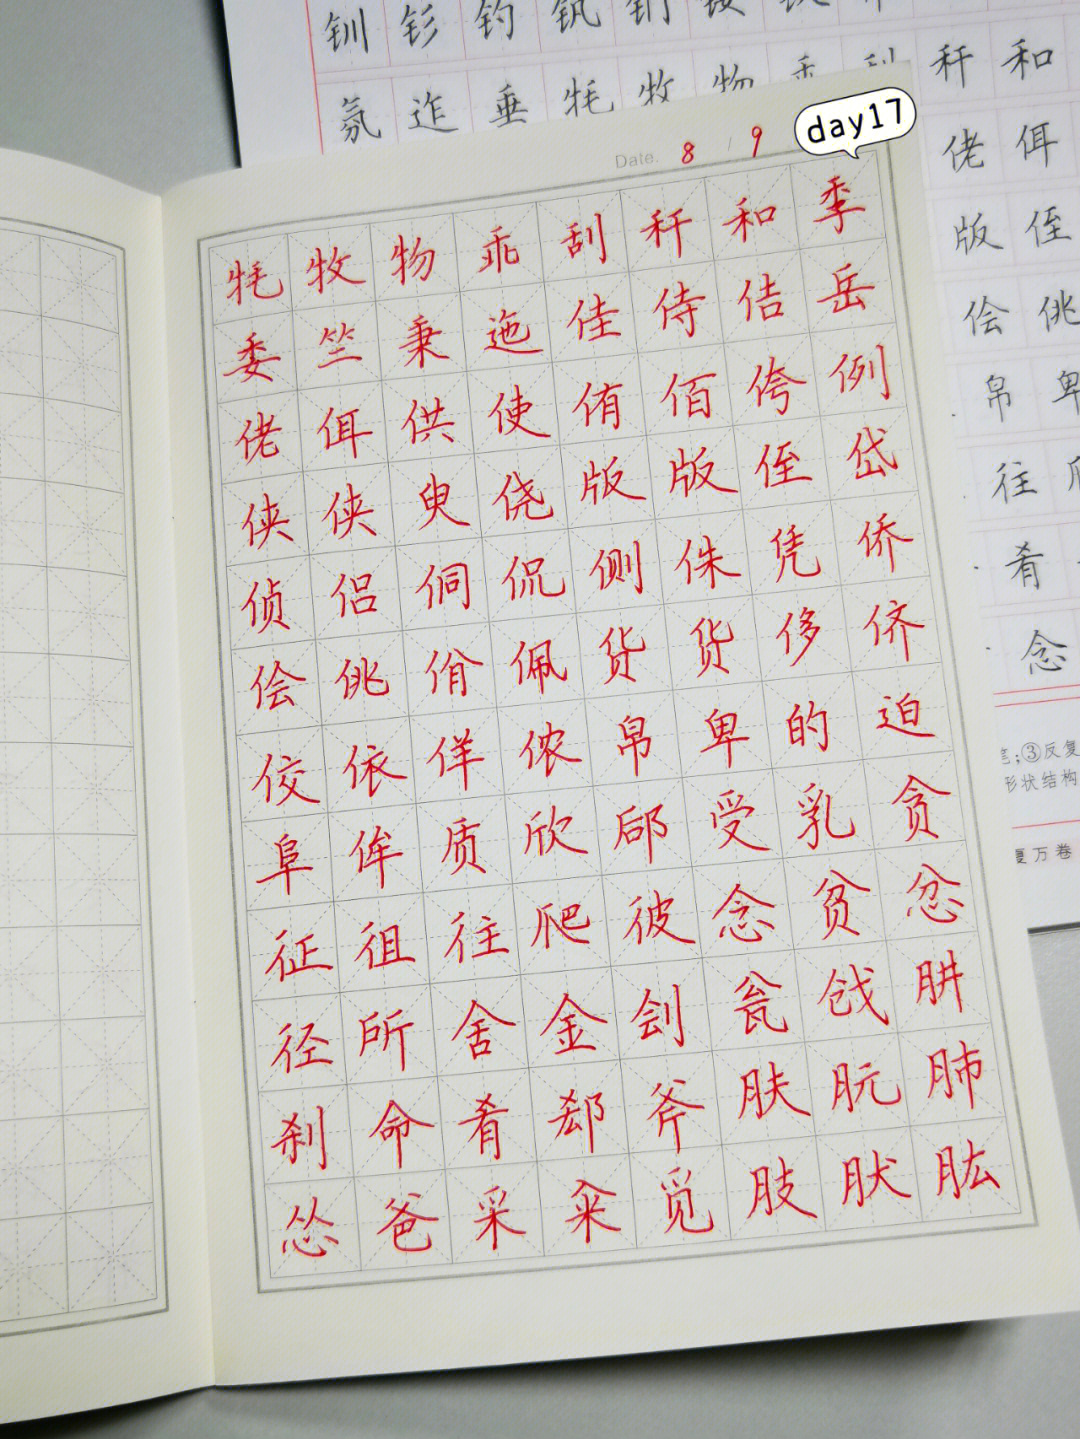 钏 钐 钓 钒
氖 迮 垂 牦 牧 物 乖 刮 秆 和
佬 佴
版 侄
侩 佻
帛 卑
往
肴
念
;③反复
形状结构
复万卷
day17
Date. 8 / 9
牦 牧 物 乖 刮 秆 和 季
委 竺 秉 迤 佳 侍 佶 岳
佬 佴 供 使 侑 佰 侉 例
侠 侠 臾 侥 版 版 侄 岱
侦 侣 侗 侃 侧 侏 凭 侨
侩 佻 佾 佩 货 货 侈 侪
佼 依 佯 侬 帛 卑 的 迫
阜 侔 质 欣 郈 受 乳 贪
征 徂 往 爬 彼 念 贫 忿
径 所 舍 金 刽 瓮 戗 肼
刹 命 肴 郄 斧 肤 朊 肺
怂 爸 采 籴 觅 肢 肰 肱